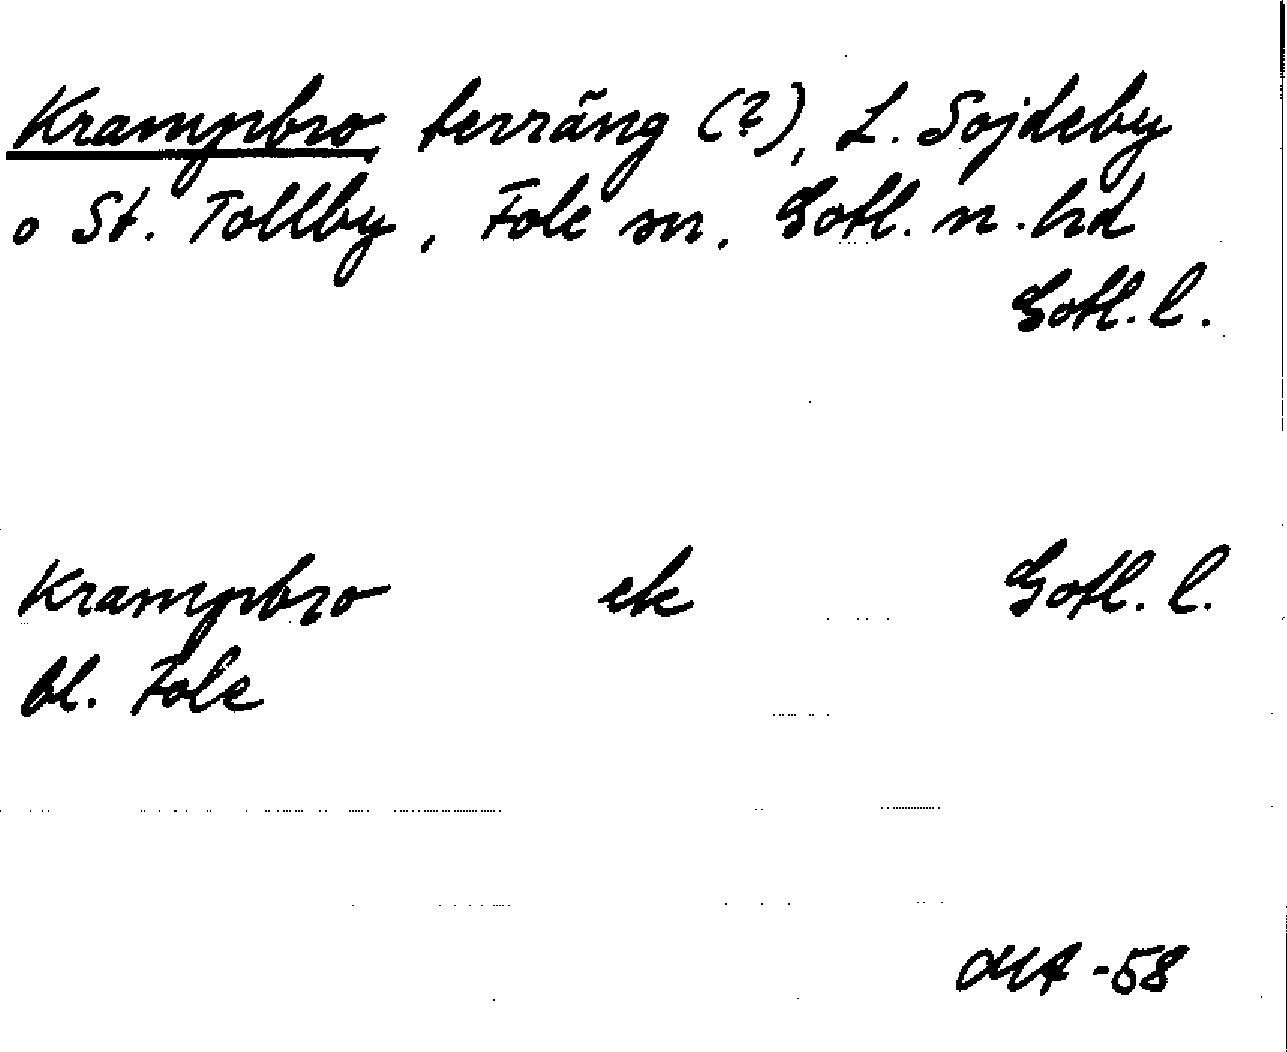 Krampbro, terräng (?), L. Sojdeby
o St. Tollby, Fole sn, Gotl. n. hd
Gotl. l.
Krampbro ek Gotl. l.
bl. Fole
-58